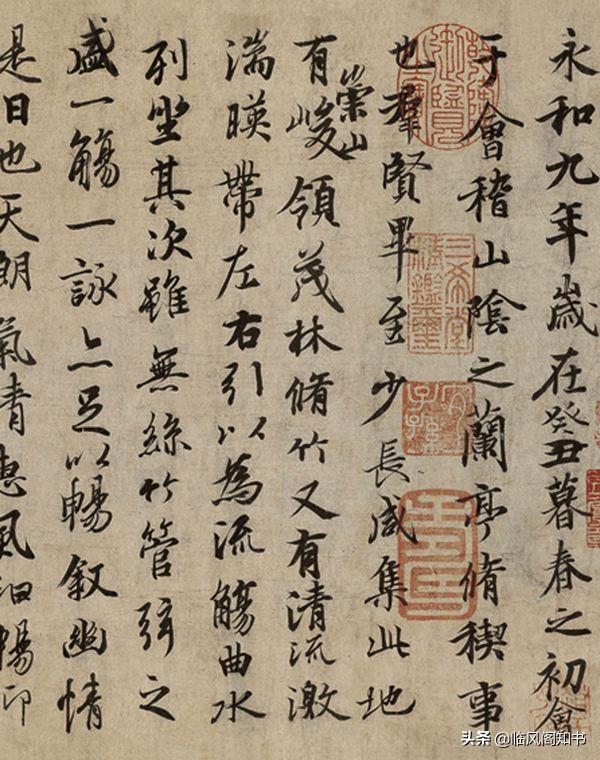 永和九年歲在癸丑暮春之初會
于會稽山陰之蘭亭脩稧事
也羣賢畢至少長咸集此地
有崇山峻領茂林脩竹又有清流激
湍暎帶左右引以為流觴曲水
列坐其次雖無絲竹管弦之
盛一觴一詠亦足以暢敘幽情
是日也天朗氣清惠風和暢仰
三希堂精鑑璽
宜子孫
头条 @临风阁知书